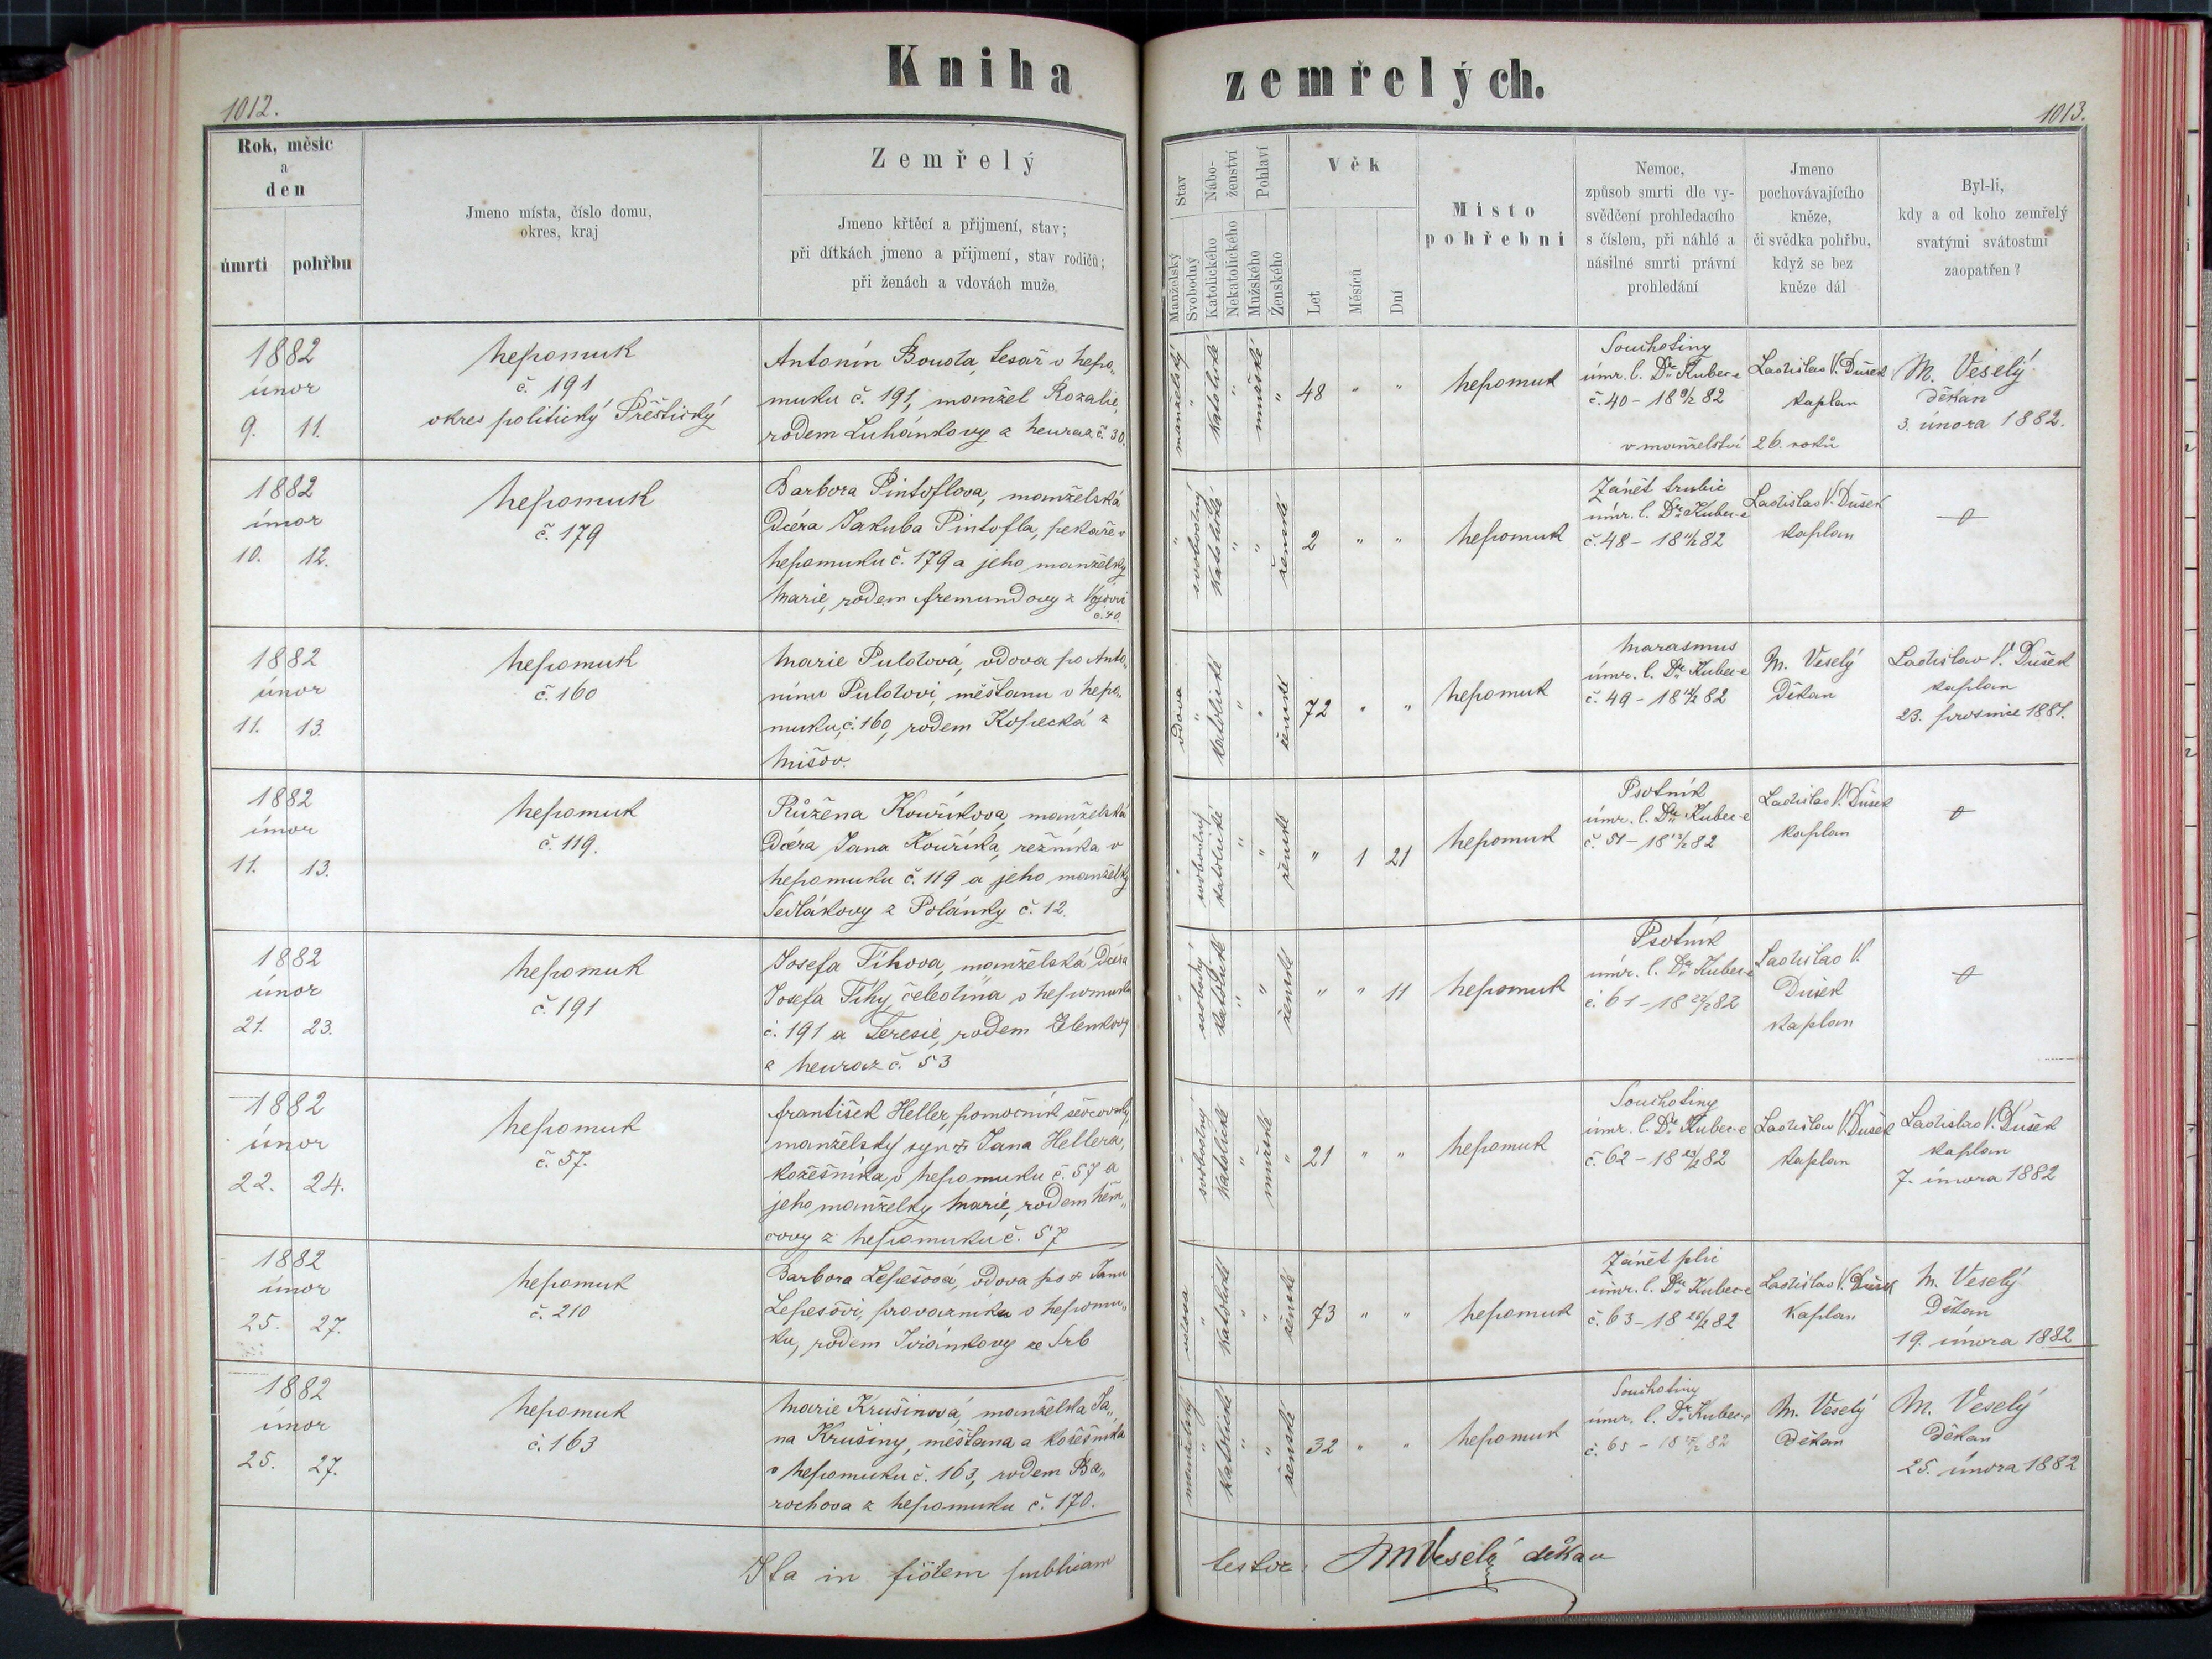 Kniha zemřelých.
1012.
1013.
Rok, měsíc
a
den
úmrtí pohřbu
Jmeno místa, číslo domu,
okres, kraj
Zemřelý
Jmeno křtěcí a přijmení, stav;
při dítkách jmeno a přijmení, stav rodičů;
při ženách a vdovách muže.
Stav
Manželský
Svobodný
Nábo-
ženství
Katolického
Nekatolického
Pohlaví
Mužského
Ženského
Věk
Let
Měsíců
Dní
Místo
pohřební
Nemoc,
způsob smrti dle vy-
svědčení prohledacího
s číslem, při náhlé a
násilné smrti právní
prohledání
Jmeno
pochovávajícího
kněze,
či svědka pohřbu,
když se bez
kněze dál
Byl-li,
kdy a od koho zemřelý
svatými svátostmi
zaopatřen?
1882
únor
9. 11.
Nepomuk
č. 191
okres politický Přeštický
Antonín Bouda, tesař v Nepo„
muku č. 191, manžel Rozalie,
rodem Luhánkovy z Neuraz č. 30.
manželský " katolické " mužské "
48 " "
Nepomuk
Souchotiny
úmr. l. Dra Kubec-e
č. 40 - 18 9/2 82
v manželství 26. roků
Ladislav V. Dušek
kaplan
M. Veselý
děkan
3. února 1882.
1882
únor
10. 12.
Nepomuk
č. 179
Barbora Pintoflova, manželská
dcéra Jakuba Pintofla, pekaře v
Nepomuku č. 179 a jeho manželky
Marie, rodem Fremundovy z
č. 40.
" svobodný katolické " " ženské
2 " "
Nepomuk
Zánět trubic
úmr. l. Dra Kubec-e
č. 48 - 18 11/2 82
Ladislav V. Dušek
kaplan
1882
únor
11. 13.
Nepomuk
č. 160
Marie Puldová, vdova po Anto„
nínu Puldovi, měšťanu v Nepo„
muku, č. 160, rodem Kopecká z
Mišov.
vdova " katolické " " ženské
72 " "
Nepomuk
Marasmus
úmr. l. Dra Kubec-e
č. 49 - 18 12/2 82
M. Veselý
děkan
Ladislav V. Dušek
kaplan
23. prosince 1881.
1882
únor
11. 13.
Nepomuk
č. 119.
Růžena Kouříkova, manželská
dcéra Jana Kouříka, řezníka v
Nepomuku č. 119 a jeho manželky
Sedlákovy z Polánky č. 12.
" svobodný katolické " " ženské
" 1 21
Nepomuk
Psotník
úmr. l. Dra Kubec-e
č. 51 - 18 13/2 82
Ladislav V. Dušek
kaplan
1882
únor
21. 23.
Nepomuk
č. 191
Josefa Tíhova, manželská dcéra
Josefa Tíhy, čeledína v Nepomuku
č. 191 a Teresie, rodem Zelenkovy
z Neuraz č. 53
" svobodný katolické " " ženské
" " 11
Nepomuk
Psotník
úmr. l. Dra Kubec-e
č. 61 - 18 22/2 82
Ladislav V.
Dušek
kaplan
1882
únor
22. 24.
Nepomuk
č. 57.
František Heller, pomocník ševcovský,
manželský syn † Jana Hellera,
kožešníka v Nepomuku č. 57 a
jeho manželky Marie, rodem Něm„
covy z Nepomuku č. 57
" svobodný katolické " mužské "
21 " "
Nepomuk
Souchotiny
úmr. l. Dra Kubec-e
č. 62 - 18 23/2 82
Ladislav V. Dušek
kaplan
Ladislav V. Dušek
kaplan
7. února 1882
1882
únor
25. 27.
Nepomuk
č. 210
Barbora Lepešová, vdova po † Janu
Lepešovi, provazníku v Nepomu„
ku, rodem ze Srb
vdova " katolické " " ženské
73 " "
Nepomuk
Zánět plic
úmr. l. Dra Kubec-e
č. 63 - 18 26/2 82
Ladislav V. Dušek
kaplan
M. Veselý
děkan
19. února 1882
1882
únor
25. 27.
Nepomuk
č. 163
Marie Krušinová, manželka Ja„
na Krušiny, měšťana a kožešníka
v Nepomuku č. 163, rodem Ba„
rochova z Nepomuku č. 170.
manželský " katolické " " ženské
32 " "
Nepomuk
Souchotiny
úmr. l. Dra Kubec-e
č. 65 - 18 27/2 82
M. Veselý
děkan
M. Veselý
děkan
25. února 1882
Ita in fidem publicam testor: MVeselý děkan